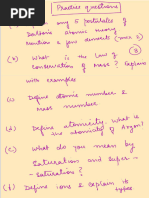 Practice questions
(a) Explain any 5 postulates of
Dalton's atomic theory
Mention & few demerits (
(b) What is the Law of
conservation of mass ? Explain
(3)
with examples
(c) Define atomic number &
mass number
(d) Define atomicity. What is
the atomicity of Argon?
(e) What do you mean by
Saturation and Super -
Saturation ?
(f) Define ions & explain its
types